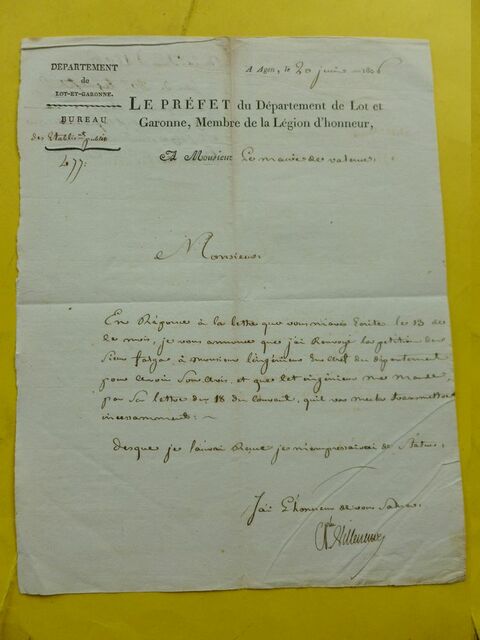 DÉPARTEMENT
de
LOT-ET-GARONNE.
BUREAU
des Etablis.mts publics
477.
A Agen, le 20 juin 1806
LE PRÉFET du Département de Lot et
Garonne, Membre de la Légion d'honneur,
A Monsieur Le maire de valence.
Monsieur
En Réponse à la lettre que vous m'avés Ecrite le 13 de
ce mois, je vous annonce que j'ai Renvoyé la petition du
Sieur à monsieur l'ingénieur En chef du département
pour avoir Son avis, et que cet ingénieur me
par Sa lettre du 18 du Courant, qu'il va me le transmettre
incessamment.
Desque je l'aurai Reçue je m'empresserai de Statuer.
J'ai L'honneur de vous Saluer.
Villeneuve